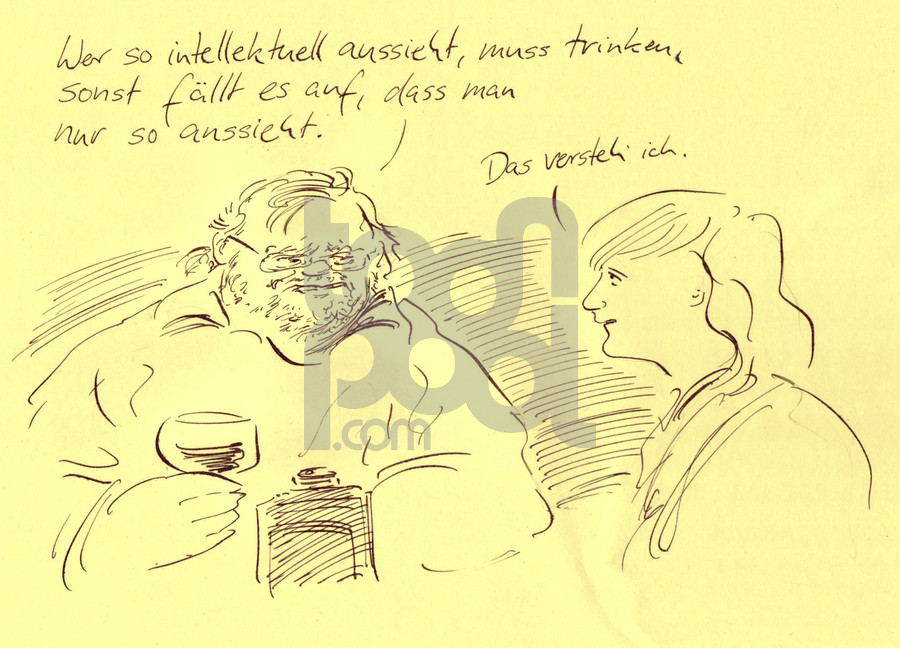 Wer so intellektuell aussieht, muss trinken,
sonst fällt es auf, dass man
nur so aussieht.
Das versteh ich.
toonpool
.com